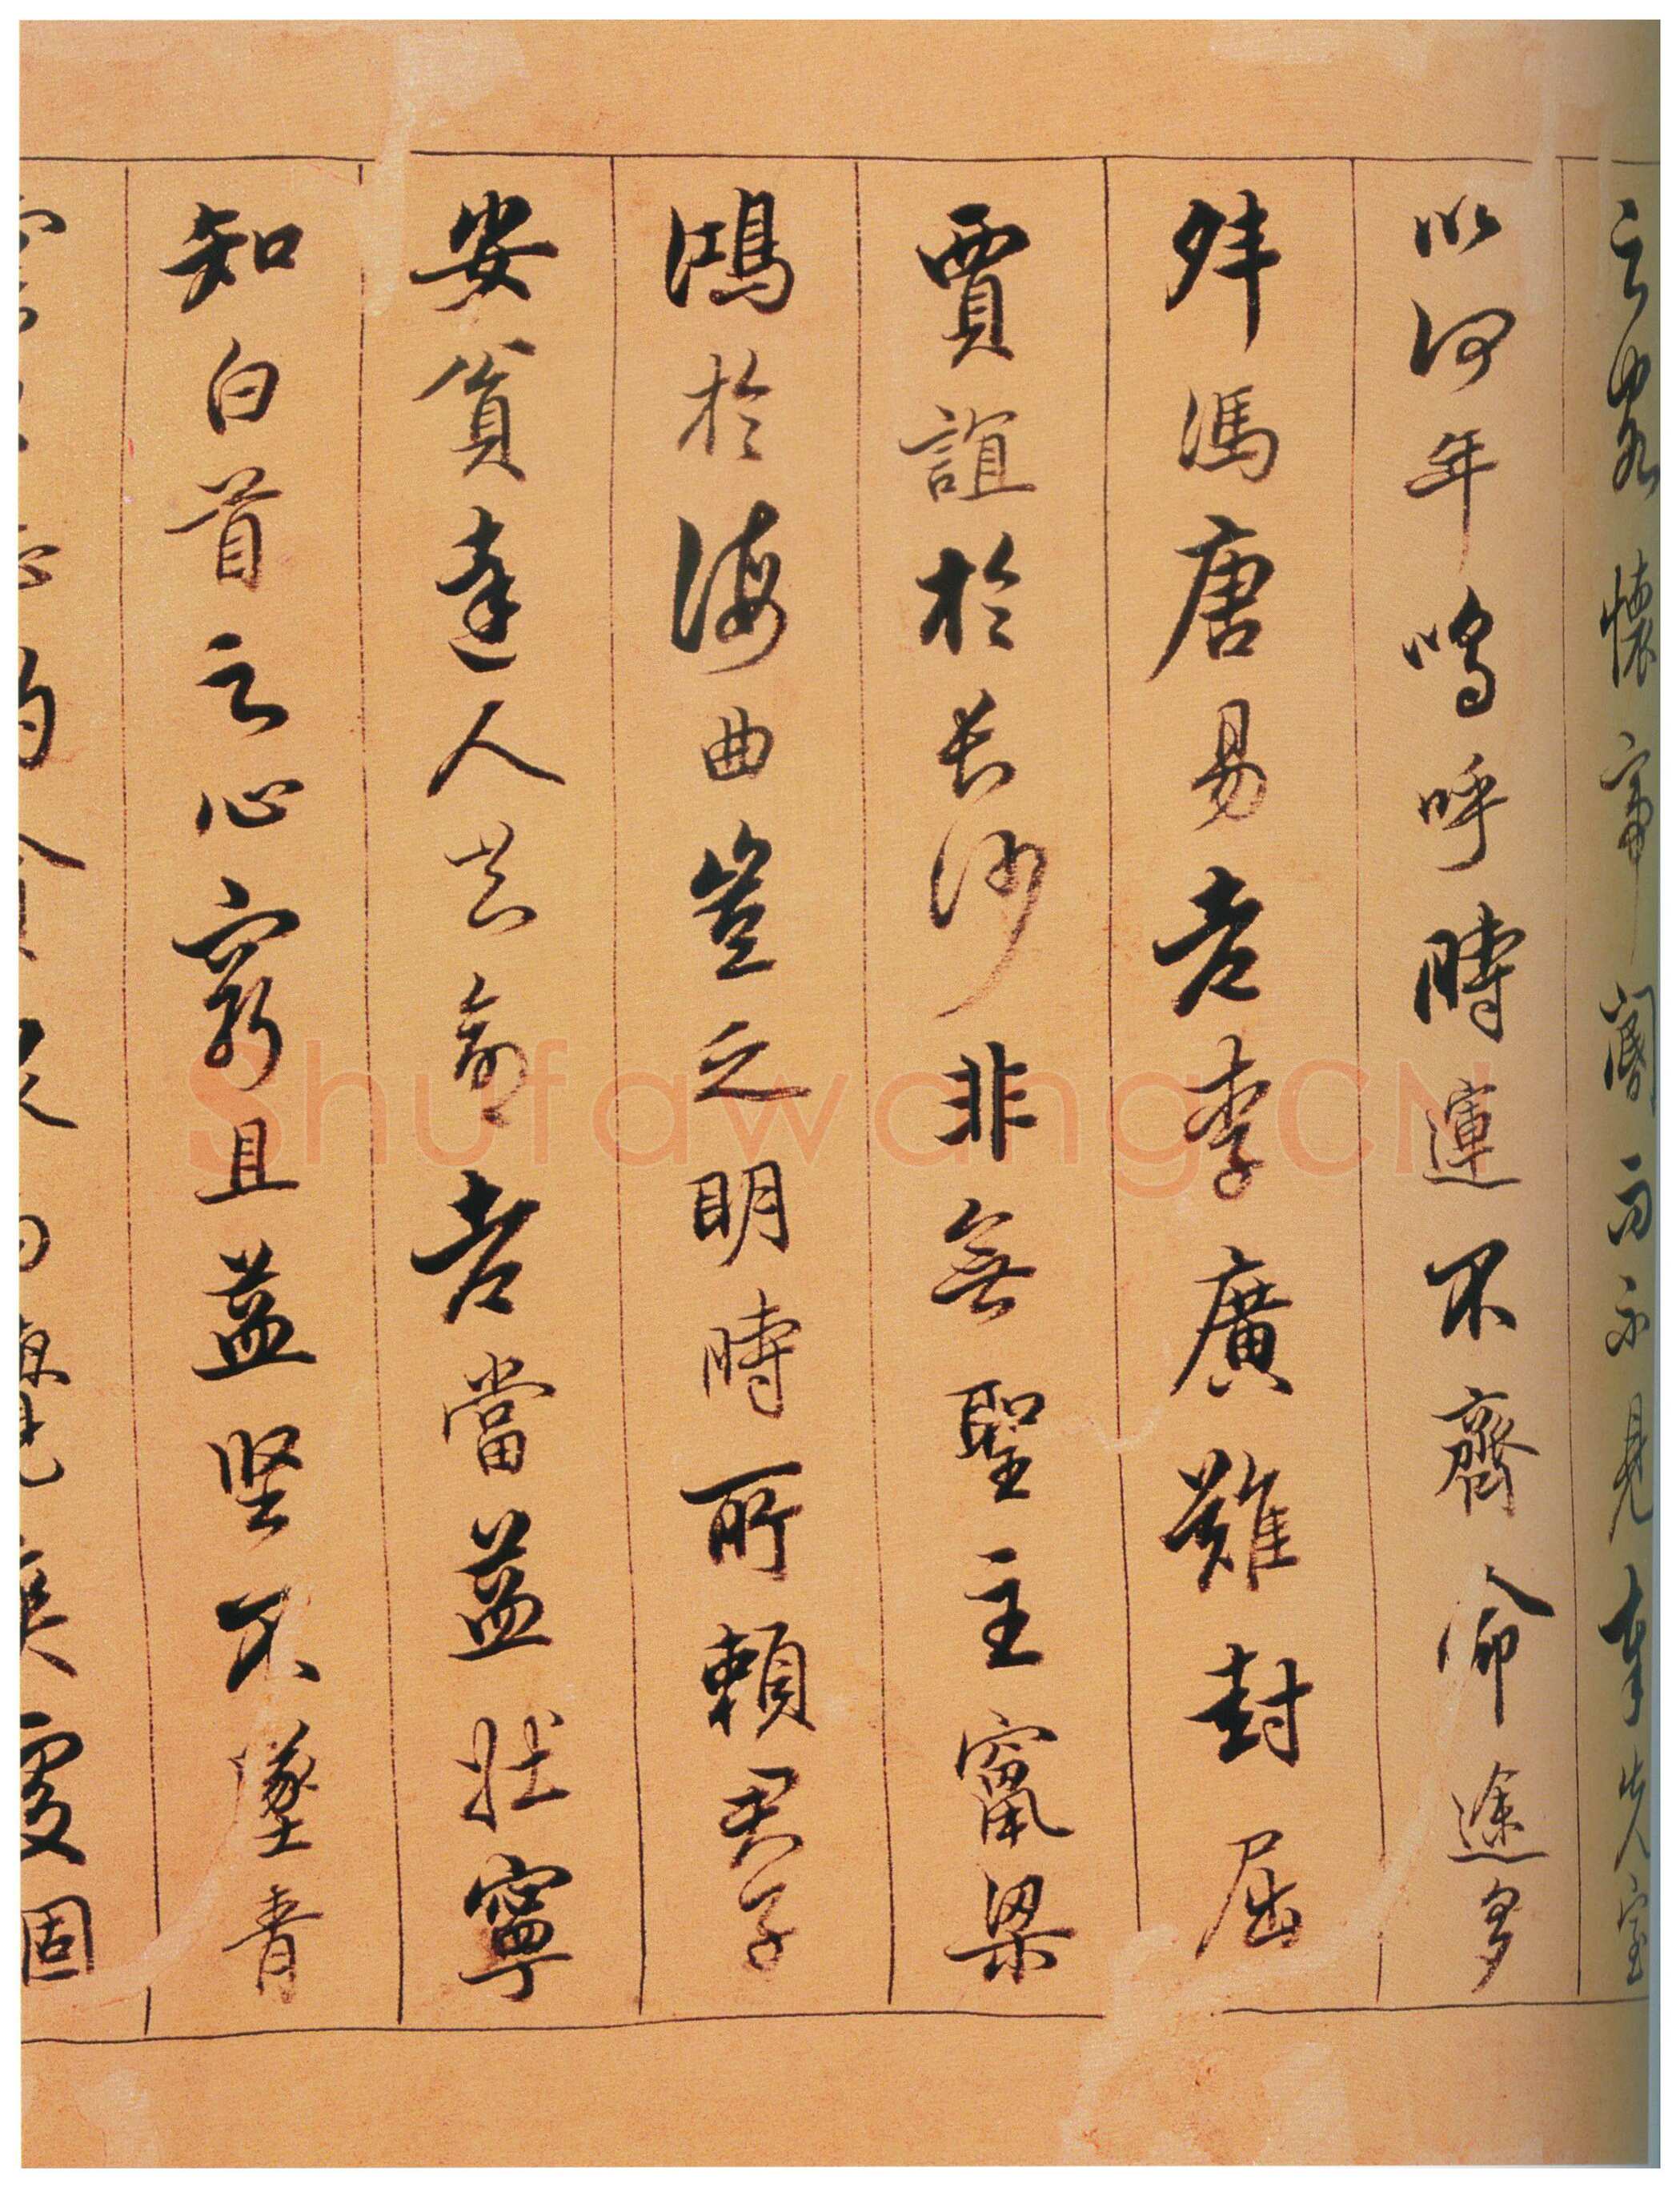 之客懷帝閽而不見奉室
以何年嗚呼時運不齊命途多
舛馮唐易老李廣難封屈
賈誼於長沙非無聖主竄梁
鴻於海曲豈之明時所賴君子
安貧達人命老當益壯寧
知白首之心窮且益坚不墜青
雲之志酌貪泉而覺爽處涸
Shufawang.CN